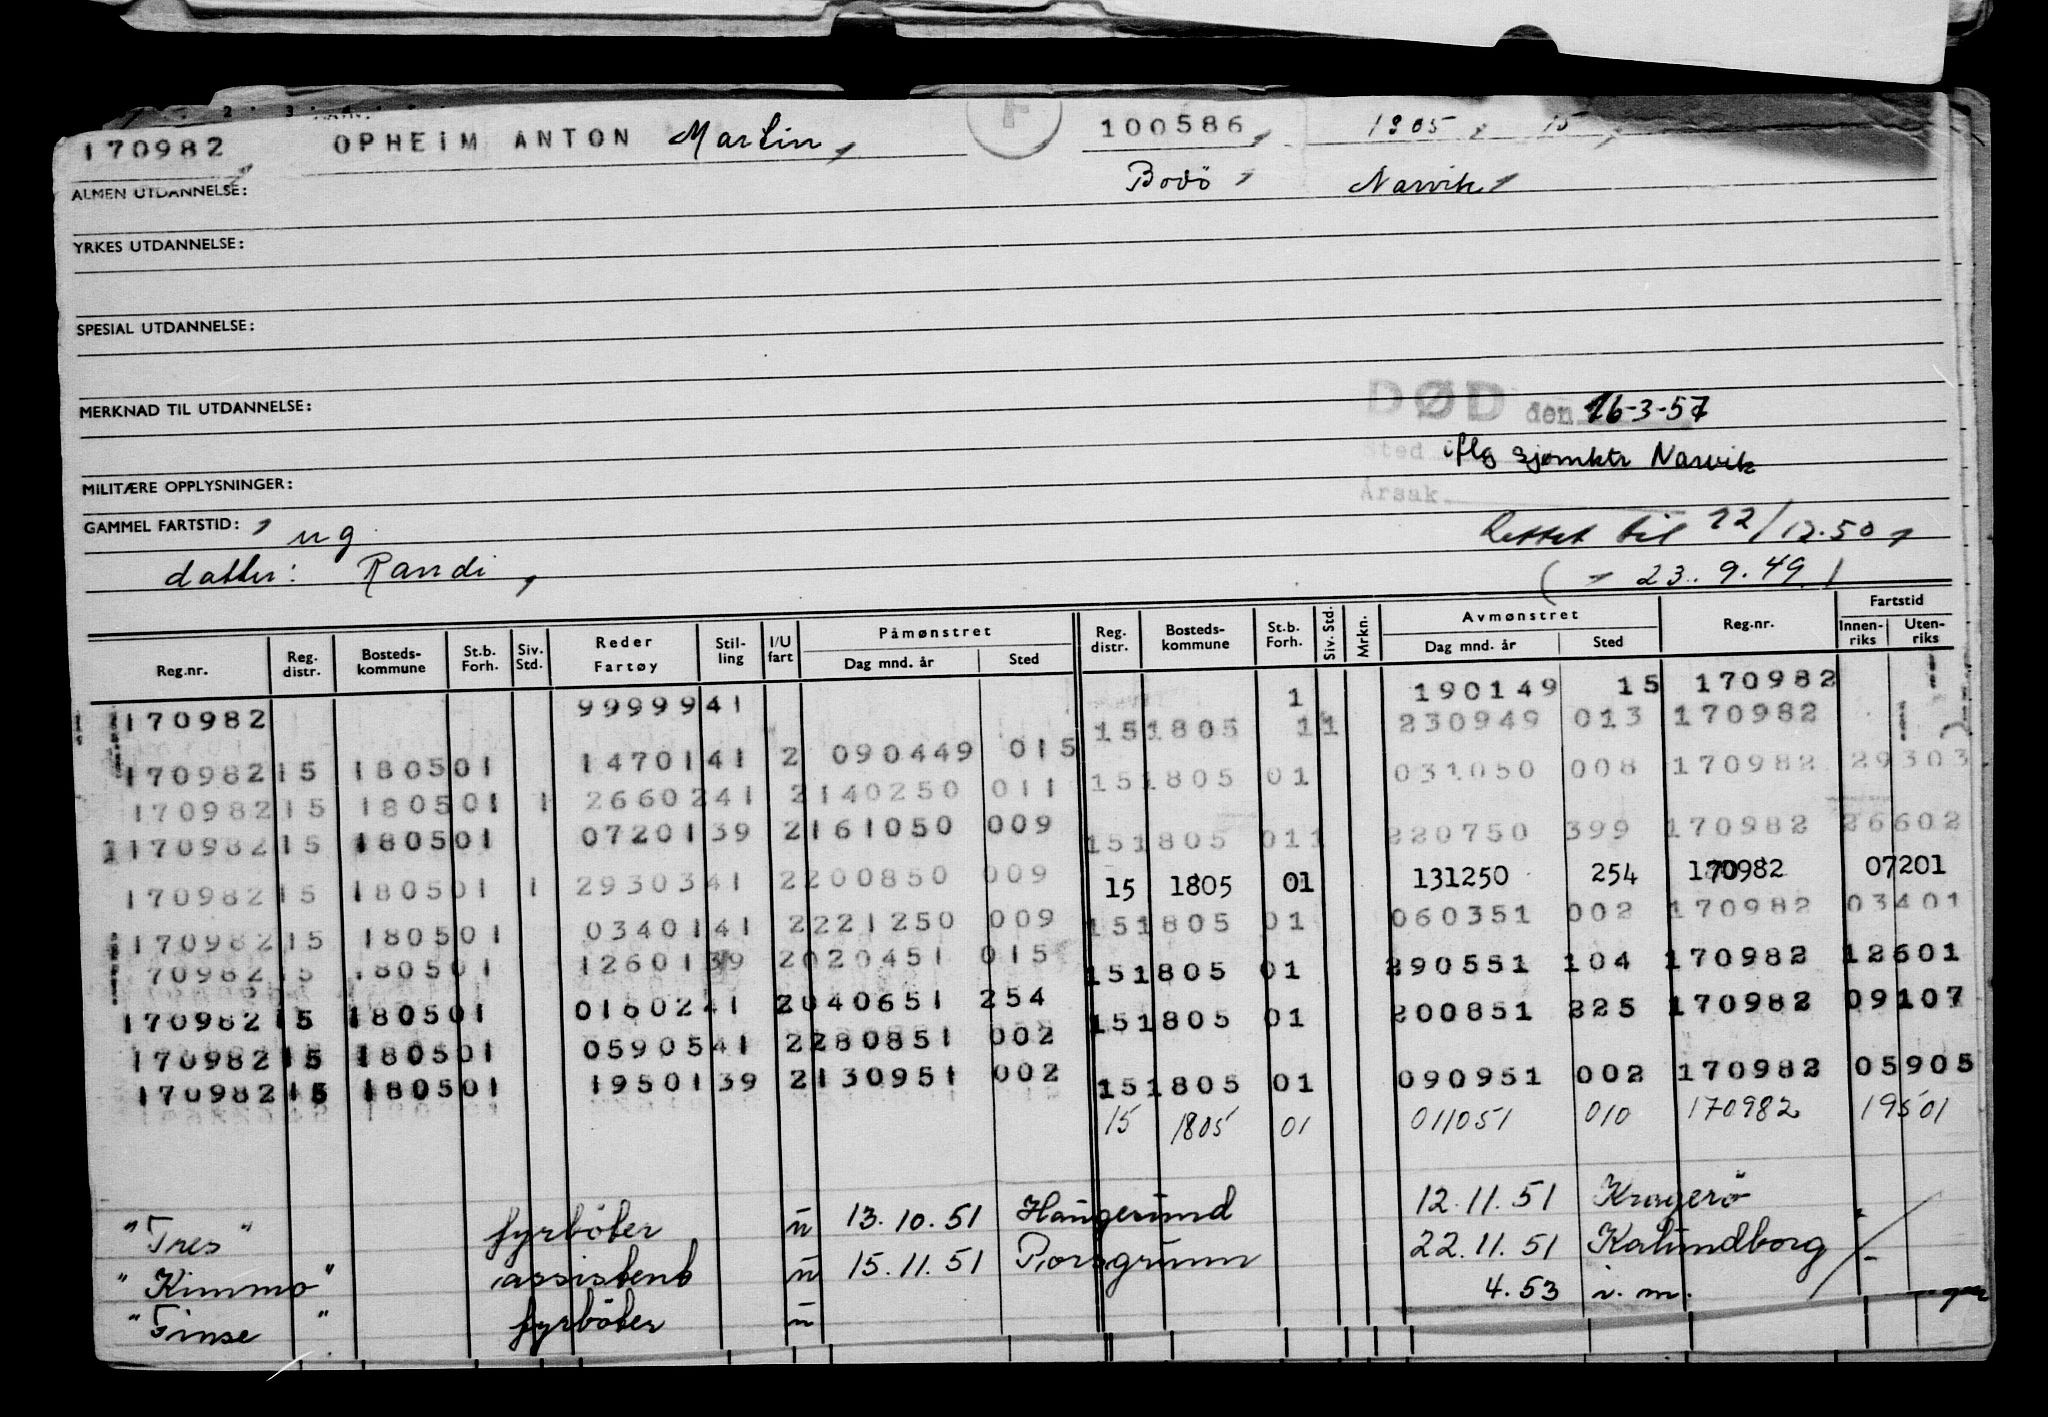 170982 OPHEIM ANTON Martin, 100586, 1905, 15,
ALMEN UTDANNELSE: Bodö Narvik
YRKES UTDANNELSE:
SPESIAL UTDANNELSE:
MERKNAD TIL UTDANNELSE: DØD den 16-3-57
Sted iflg sjömktr Narvik
MILITÆRE OPPLYSNINGER: Årsak
GAMMEL FARTSTID: ug Rettet til 22/12.50
datter: Randi, ( " 23.9.49 )
Reg.nr. Reg. distr. Bosteds-kommune St.b. Forh. Siv. Std. Reder Fartøy Stil-ling I/U fart Påmønstret Dag mnd. år Sted Reg. distr. Bosteds-kommune St.b. Forh. Siv. Std. Mrkn. Avmønstret Dag mnd. år Sted Reg.nr. Fartstid Innen-riks Uten-riks
170982 99999 41 1 190149 15 170982
170982 15 1805 01 14701 41 2 090449 015 15 1805 11 230949 013 170982
170982 15 1805 01 1 26602 41 2 140250 011 15 1805 01 031050 008 170982 29303
170982 15 1805 01 07201 39 2 161050 009 15 1805 01 1 220750 399 170982 26602
170982 15 1805 01 1 29303 41 2 200850 009 15 1805 01 131250 254 170982 07201
170982 15 1805 01 03401 41 2 221250 009 15 1805 01 060351 002 170982 03401
70982 15 1805 01 12601 39 2 020451 015 15 1805 01 290551 104 170982 12601
170982 15 1805 01 01602 41 2 040651 254 15 1805 01 200851 225 170982 09107
170982 15 1805 01 05905 41 2 280851 002
170982 15 1805 01 19501 39 2 130951 002 15 1805 01 090951 002 170982 05905
15 1805 01 011051 010 170982 19501
"Tres" fyrböter u 13.10.51 Haugesund 12.11.51 Kragerö
"Kimmo" assistent u 15.11.51 Porsgrunn 22.11.51 Kalundborg
"Finse" fyrböter u 4.53 i.m.